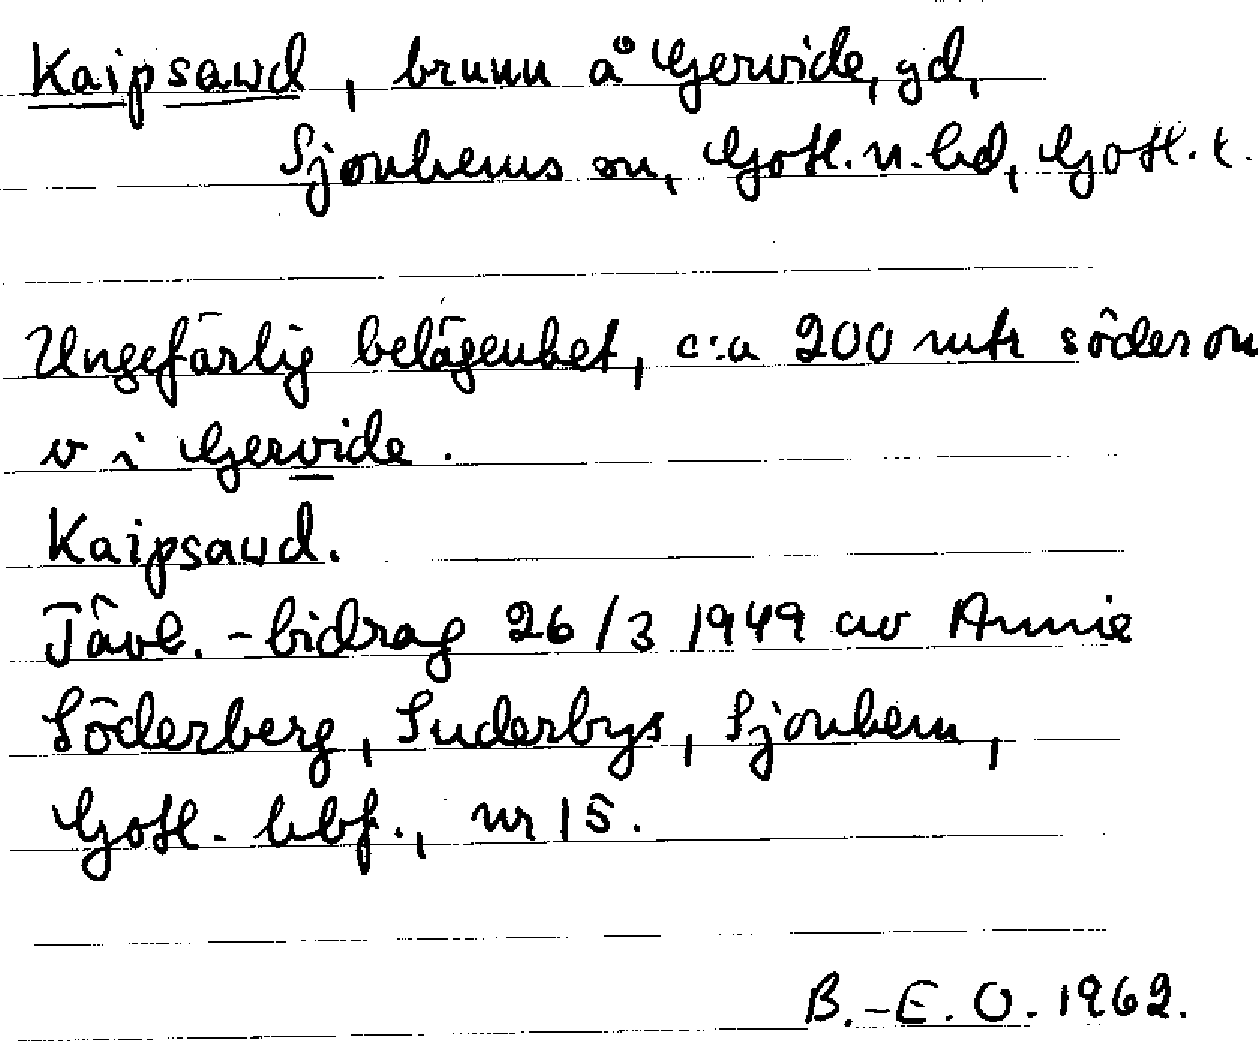 Kaipsawd, brunn å Gervide, gd,
Sjonhems sn, Gotl. n. hd, Gotl. l.
Ungefärlig belägenhet, c:a 200 mtr söder om
v i Gervide.
Kaipsawd.
Tävl.-bidrag 26/3 1949 av Annie
Söderberg, Suderbys, Sjonhem,
Gotl. hbf., nr 15.
B.-E. O. 1962.